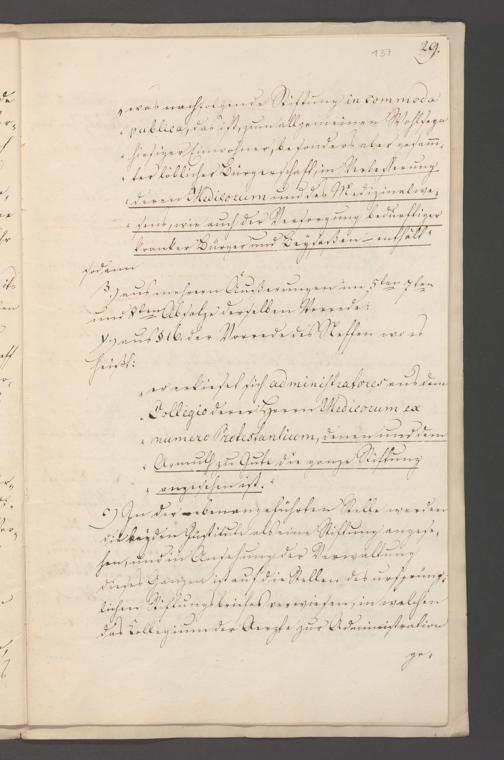 137 29.
„was nachfolgende Stiftung in commoda
„publica, das ist, zum allgemeinen Wohl
„hiesiger Einwohner, besonders aber gesam„
„ter löblicher Bürgerschaft, in Verbesserung
„derer Medicorum und des Medizinalwe„
„sens, wie auch der Versorgung bedürftiger
„kranker Bürger und Beysassen – enthält“
sodann
β.) aus mehrern Äußerungen im 5ten 7ten
und 8ten Absatze derselben Vorrede:
γ.) aus § 16. der Vorrede des Neffen wo es
heißt:
„er erkieset sich administratores aus dem
„Collegio derer Herrn Medicorum ex
„numero Protestantium, denen und dem
„Armuth zu Gute die ganze Stiftung
„angesehen ist.“
c) In der obenangeführten Stelle werden
die beyden Institute als eine Stiftung angese„
hen, und in Ansehung der Verwaltung
dieses Ganzen ist auf die Stellen des ursprüng„
lichen Stiftungsbriefes verwiesen, in welchen
das Collegium der Aerzte zur Administration
ge„